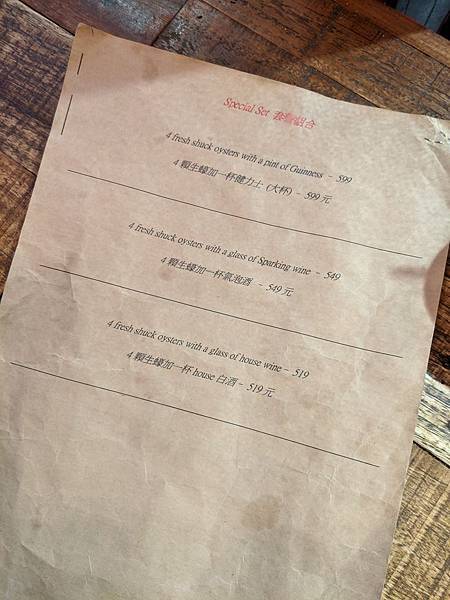 Special Set 套餐組合
4 fresh shuck oysters with a pint of Guinness - 599
4 顆生蠔加一杯健力士 (大杯) - 599 元
4 fresh shuck oysters with a glass of Sparking wine - 549
4 顆生蠔加一杯氣泡酒 - 549 元
4 fresh shuck oysters with a glass of house wine - 519
4 顆生蠔加一杯 house 白酒 - 519 元